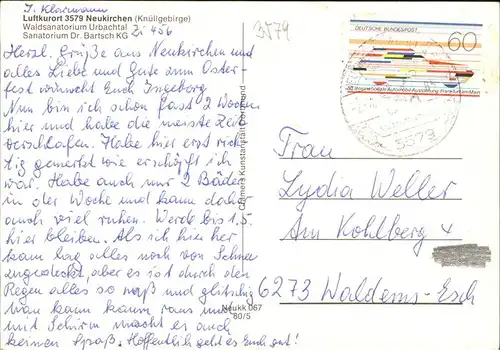 I. Klarmann
Luftkurort 3579 Neukirchen (Knüllgebirge)
Waldsanatorium Urbachtal
Sanatorium Dr. Bartsch KG
Zi 456
3579
Herzl. Grüße aus Neukirchen und
alles Liebe und Gute zum Oster-
fest wünscht Euch Ingeborg
Nun bin ich schon fast 2 Wochen
hier und habe die meiste Zeit
verschlafen. Habe hier erst rich-
tig gemerkt wie erschöpft ich
war. Habe auch nur 2 Bäder
in der Woche und kann daher
auch viel ruhen. Werde bis 1.5.
hier bleiben. Als ich hier her
kam lag alles noch von Schnee
zugedeckt, aber es ist durch den
Regen alles so naß und glitschig
man kann kaum raus und
mit Schirm macht es auch
keinen Spaß. Hoffentlich geht es Euch gut!
Cramers Kunstanstalt Dortmund
Neukk 067
80/5
DEUTSCHE BUNDESPOST
60
Internationale Automobil-Ausstellung Frankfurt am Main
3579
Frau
Lydia Weller
Am Kohlberg 4
6273 Waldems-Esch